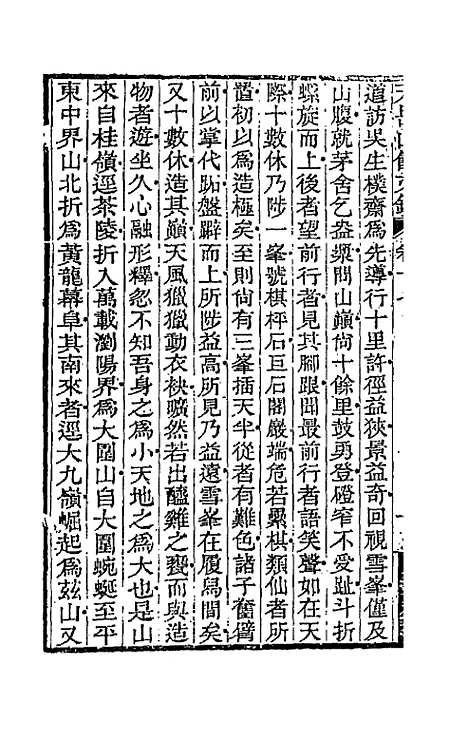 道訪吳生樸齋爲先導行十里許徑益狹景益奇回視雪峯僅及
山腹就茅舍乞盎漿問山巔尙十餘里鼓勇登磴窄不受趾斗折
螺旋而上後者望前行者見其腳跟聞最前行者語笑聲如在天
際十數休乃陟一峯號棋枰石巨石闢嚴端危若纍棋類仙者所
置初以爲造極矣至則尙有三峯插天半從者有難色諸子奮臂
前以掌代跖盤辟而上所陟益高所見乃益遠雪峯在履舄間矣
又十數休造其巔天風獵獵動衣袂曠然若出醯雞之甕而與造
物者遊坐久心融形釋忽不知吾身之爲小天地之爲大也是山
來自桂嶺逕茶陵折入萬載瀏陽界爲大圍山自大圍蜿蜒至平
東中界山北折爲黃龍幕阜其南來者逕大九嶺崛起爲茲山又